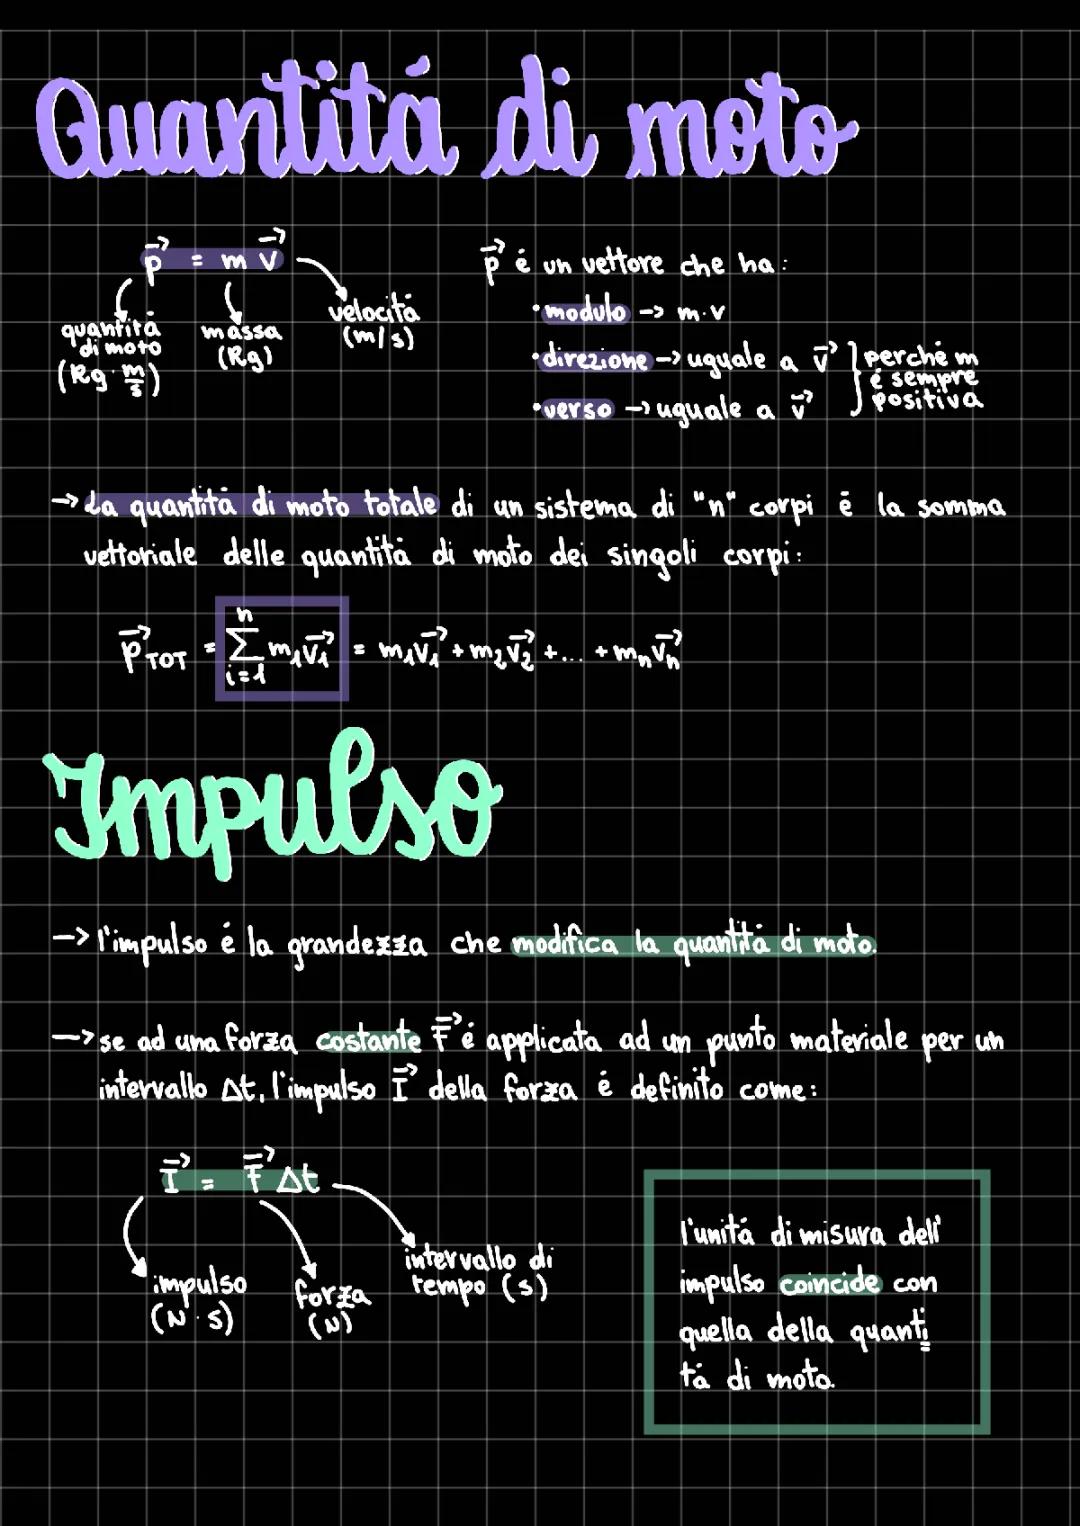 Quantitá di moto
p⃗ = m v⃗
quantitá di moto (kg · m/s)
massa (kg)
velocitá (m/s)
p⃗ é un vettore che ha:
• modulo -> m·v
• direzione -> uguale a v⃗
• verso -> uguale a v⃗
} perché m é sempre positiva
-> La quantitá di moto totale di un sistema di "n" corpi é la somma
vettoriale delle quantitá di moto dei singoli corpi:
p⃗TOT = n Σ i=1 m₁v⃗₁ = m₁v⃗₁ + m₂v⃗₂ + ... + mₙv⃗ₙ
Impulso
-> l'impulso é la grandezza che modifica la quantitá di moto.
-> se ad una forza costante F⃗ é applicata ad un punto materiale per un
intervallo Δt, l'impulso I⃗ della forza é definito come:
I⃗ = F⃗ Δt
impulso (N·s)
forza (N)
intervallo di tempo (s)
l'unitá di misura dell'
impulso coincide con
quella della quanti
tá di moto.